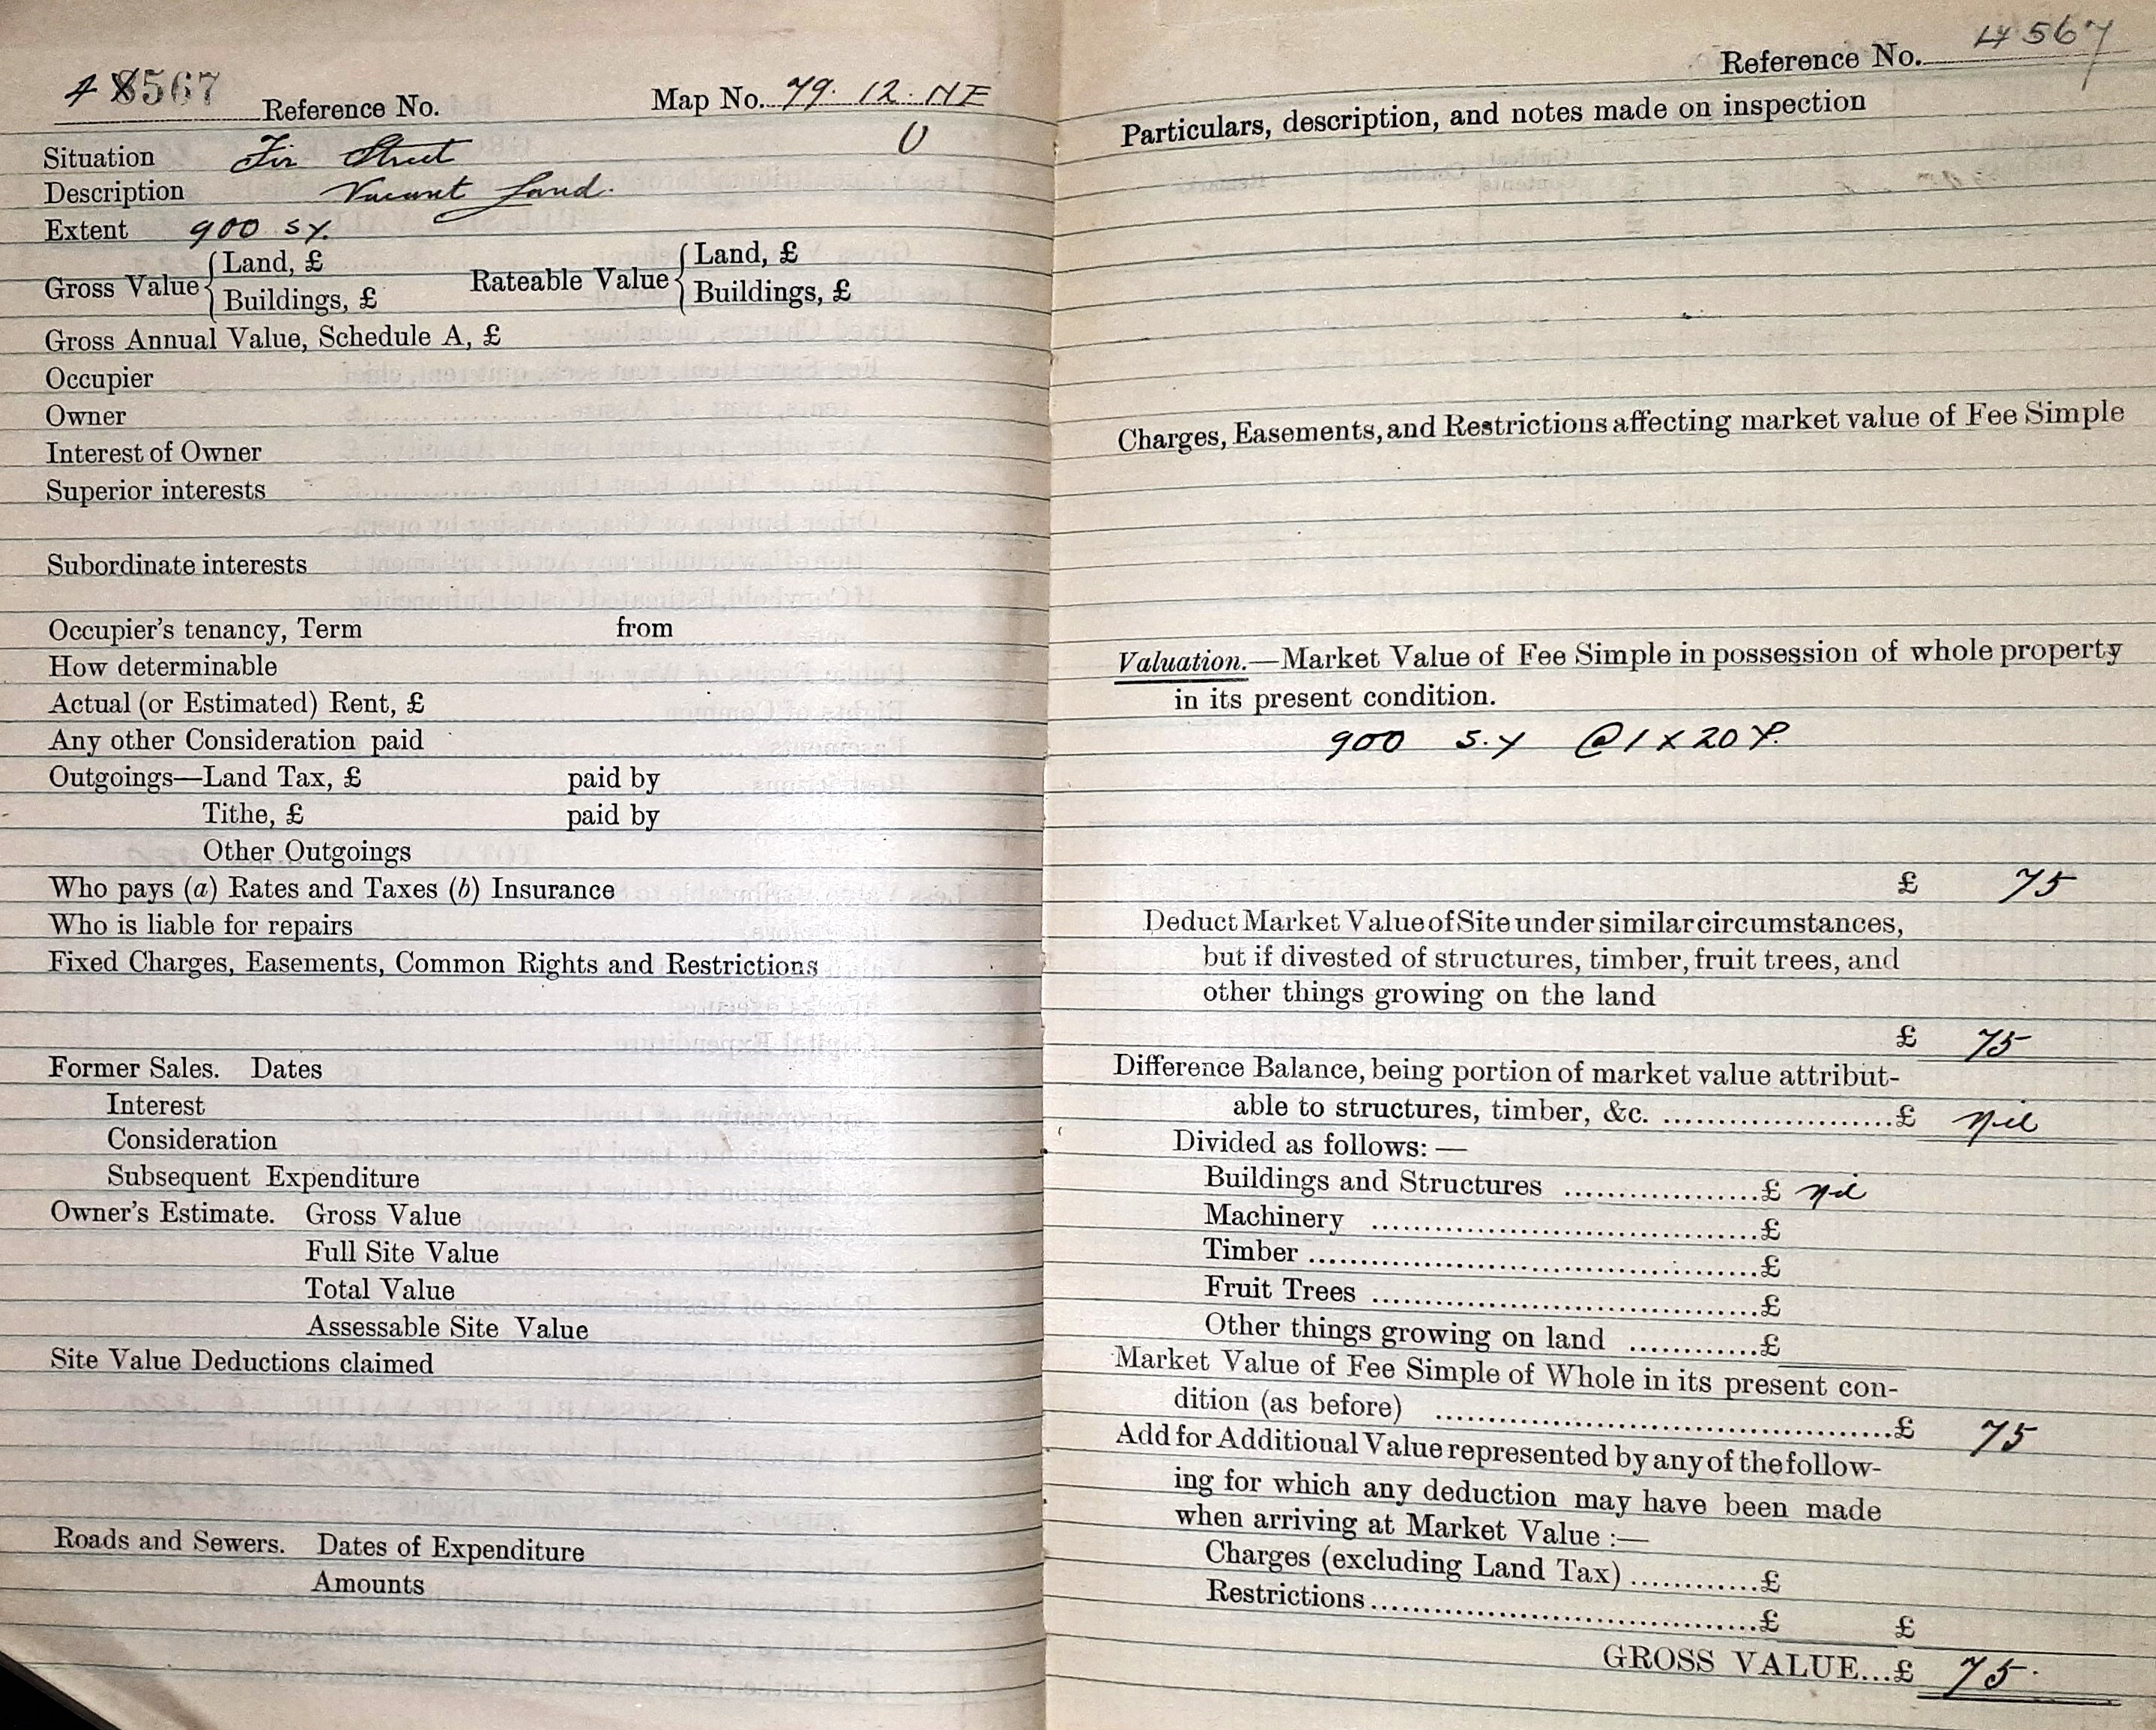 4 8567 Reference No. Map No. 79. 12. NE
U
Situation Fir Street
Description Vacant Land.
Extent 900 SY.
Gross Value { Land, £ Rateable Value { Land, £
Buildings, £ Buildings, £
Gross Annual Value, Schedule A, £
Occupier
Owner
Interest of Owner
Superior interests
Subordinate interests
Occupier's tenancy, Term from
How determinable
Actual (or Estimated) Rent, £
Any other Consideration paid
Outgoings—Land Tax, £ paid by
Tithe, £ paid by
Other Outgoings
Who pays (a) Rates and Taxes (b) Insurance
Who is liable for repairs
Fixed Charges, Easements, Common Rights and Restrictions
Former Sales. Dates
Interest
Consideration
Subsequent Expenditure
Owner's Estimate. Gross Value
Full Site Value
Total Value
Assessable Site Value
Site Value Deductions claimed
Roads and Sewers. Dates of Expenditure
Amounts
Reference No. 4567
Particulars, description, and notes made on inspection
Charges, Easements, and Restrictions affecting market value of Fee Simple
Valuation.—Market Value of Fee Simple in possession of whole property
in its present condition.
900 S.Y @ 1 X 20 Y.
£ 75
Deduct Market Value of Site under similar circumstances,
but if divested of structures, timber, fruit trees, and
other things growing on the land
£ 75
Difference Balance, being portion of market value attribut-
able to structures, timber, &c. ....................£ Nil
Divided as follows:—
Buildings and Structures ..................£ Nil
Machinery ....................................£
Timber ..........................................£
Fruit Trees ....................................£
Other things growing on land ............£
Market Value of Fee Simple of Whole in its present con-
dition (as before) ..........................................£ 75
Add for Additional Value represented by any of the follow-
ing for which any deduction may have been made
when arriving at Market Value :—
Charges (excluding Land Tax) ............£
Restrictions....................................£ £
GROSS VALUE...£ 75.